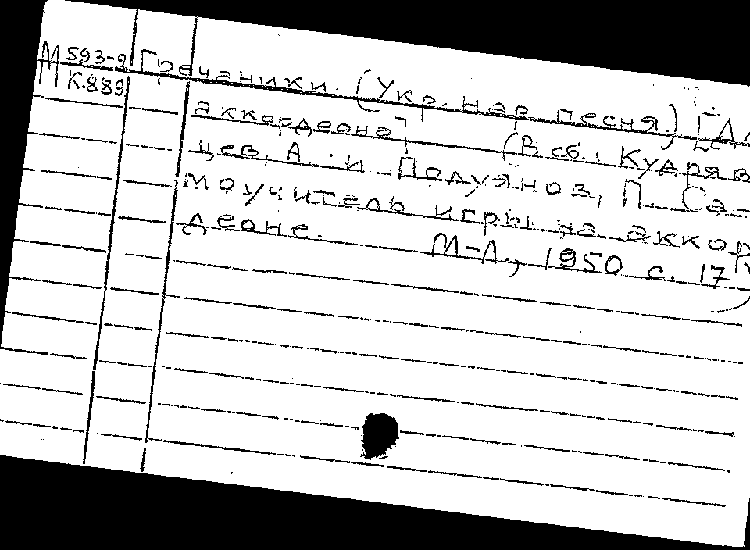 М 593-9 Гречаники. (Укр. нар. песня.) [Дл
К.889 аккордеона] (В сб. Кудряв
цев, А. и Полуянов, П. Са-
моучитель игры на аккор
деоне. М-Л., 1950 с. 17)